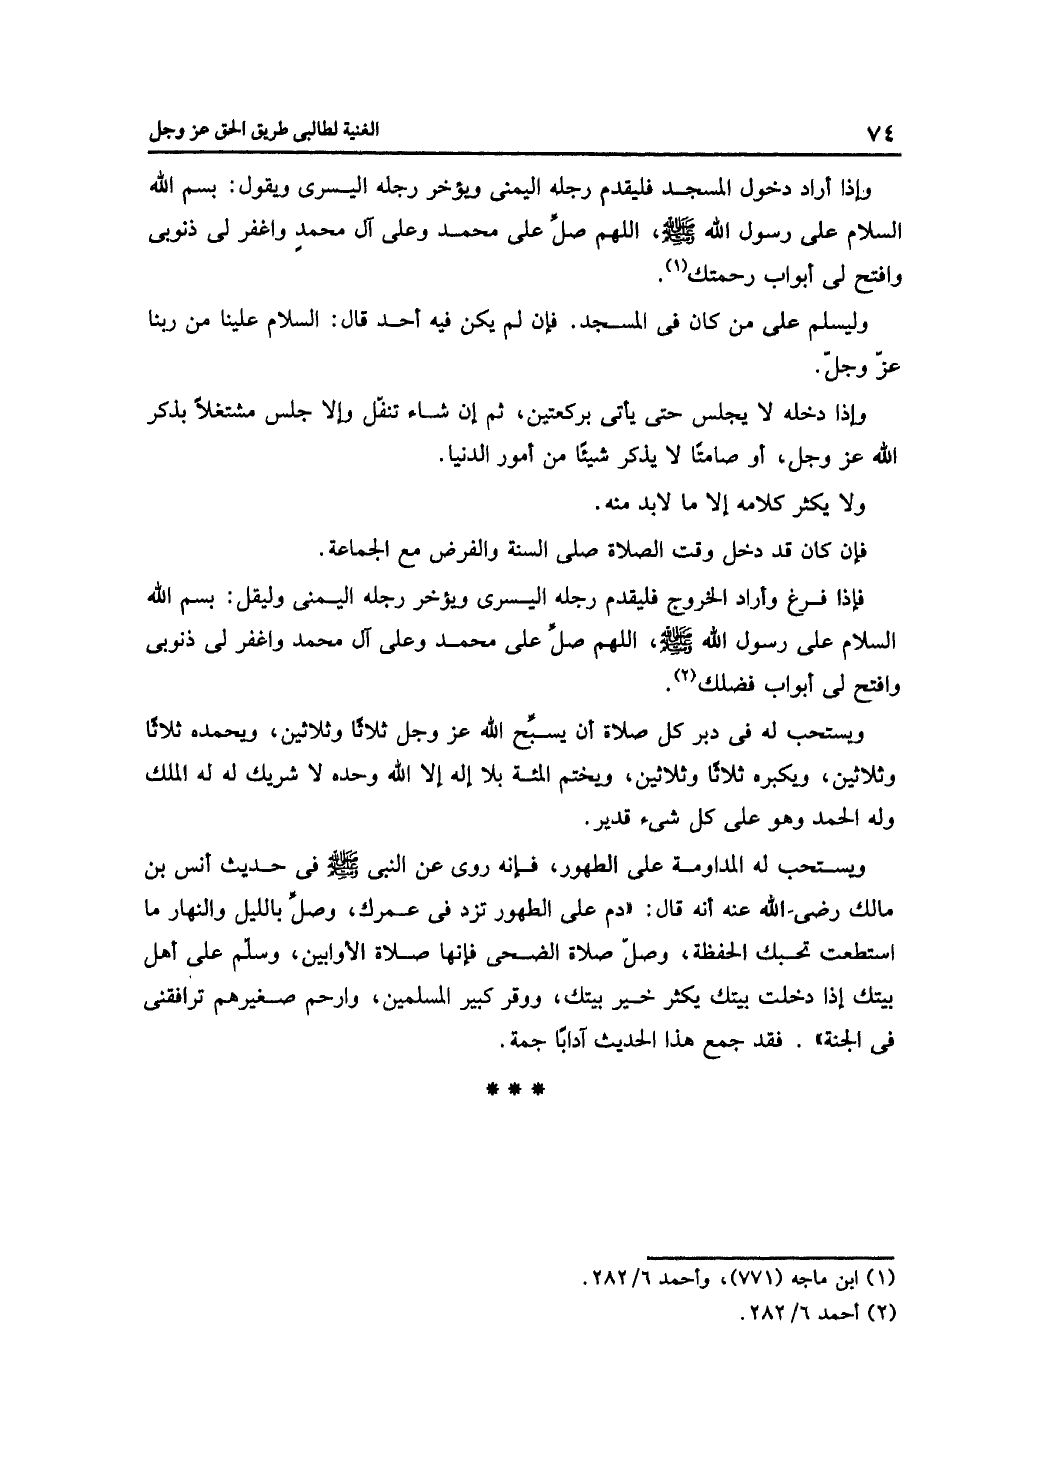 ٧٤
الغنية لطالبى طريق الحق عز وجل
وإذا أراد دخول المسجد فليقدم رجله اليمنى ويؤخر رجله اليسرى ويقول: بسم الله
السلام على رسول الله ﷺ، اللهم صلِّ على محمد وعلى آل محمدٍ واغفر لى ذنوبى
وافتح لى أبواب رحمتك(١).
وليسلم على من كان فى المسجد. فإن لم يكن فيه أحد قال: السلام علينا من ربنا
عزّ وجلّ.
وإذا دخله لا يجلس حتى يأتى بركعتين، ثم إن شاء تنفّل وإلا جلس مشتغلاً بذكر
الله عز وجل، أو صامتًا لا يذكر شيئًا من أمور الدنيا.
ولا يكثر كلامه إلا ما لابد منه.
فإن كان قد دخل وقت الصلاة صلى السنة والفرض مع الجماعة.
فإذا فرغ وأراد الخروج فليقدم رجله اليسرى ويؤخر رجله اليمنى وليقل: بسم الله
السلام على رسول الله ﷺ، اللهم صلِّ على محمد وعلى آل محمد واغفر لى ذنوبى
وافتح لى أبواب فضلك(٢).
ويستحب له فى دبر كل صلاة أن يسبِّح الله عز وجل ثلاثًا وثلاثين، ويحمده ثلاثًا
وثلاثين، ويكبره ثلاثًا وثلاثين، ويختم المئة بلا إله إلا الله وحده لا شريك له له الملك
وله الحمد وهو على كل شىء قدير.
ويستحب له المداومة على الطهور، فإنه روى عن النبى ﷺ فى حديث أنس بن
مالك رضى الله عنه أنه قال: «دم على الطهور تزد فى عمرك، وصلِّ بالليل والنهار ما
استطعت تحبك الحفظة، وصلّ صلاة الضحى فإنها صلاة الأوابين، وسلّم على أهل
بيتك إذا دخلت بيتك يكثر خير بيتك، ووقر كبير المسلمين، وارحم صغيرهم ترافقنى
فى الجنة» . فقد جمع هذا الحديث آدابًا جمة.
* * *
(١) ابن ماجه (٧٧١)، وأحمد ٦/ ٢٨٢.
(٢) أحمد ٦/ ٢٨٢.